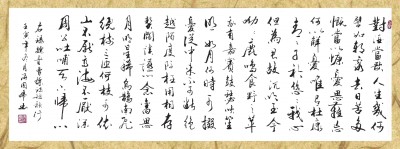 對酒當歌人生幾何
譬如朝露去日苦多
慨當以慷憂思難忘
何以解憂唯有杜康
青青子衿悠悠我心
但為君故沉吟至今
呦呦鹿鳴食野之苹
我有嘉賓鼓瑟吹笙
明明如月何時可掇
憂從中來不可斷絕
越陌度阡枉用相存
契闊談讌心念舊恩
月明星稀烏鵲南飛
繞樹三匝何枝可依
山不厭高海不厭深
周公吐哺天下歸心